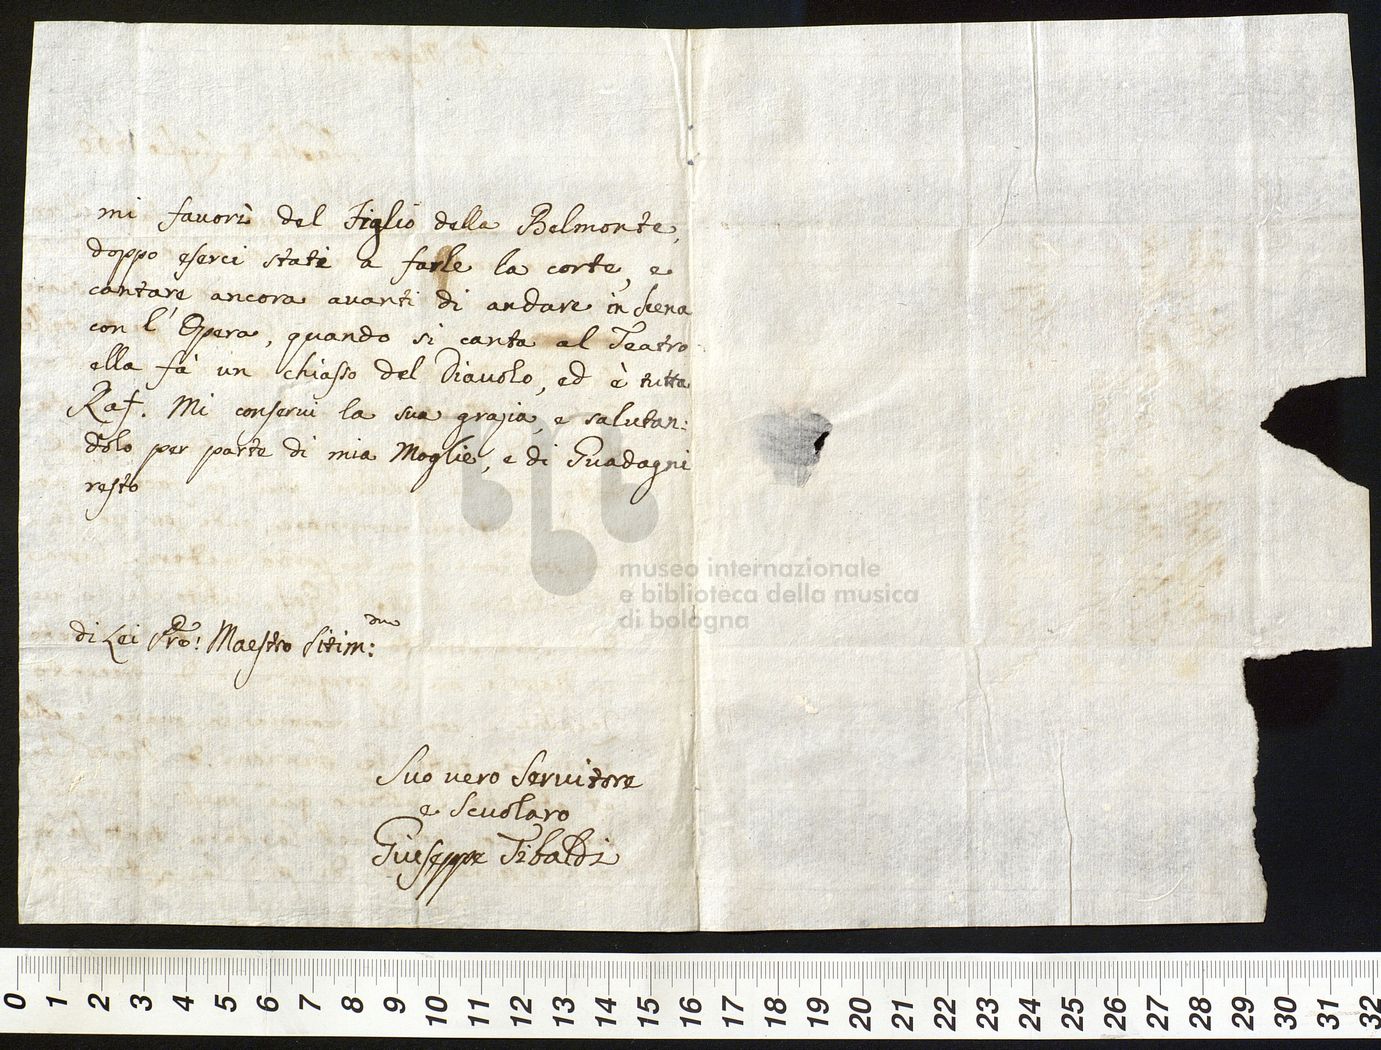 mi favorì del Figlio della Belmonte,
doppo eserci stati a farle la corte, e
cantare ancora avanti di andare in Scena
con l'Opera, quando si canta al Teatro
ella fà un chiasso del Diavolo, ed è tutta
Raf. Mi conservi la sua grazia, e salutan:
dolo per parte di mia Moglie, e di Guadagni
resto
di Lei Maestro
Suo vero Servitore
e Scuolaro
Giuseppe Tibaldi
museo internazionale
e biblioteca della musica
di bologna
0 1 2 3 4 5 6 7 8 9 10 11 12 13 14 15 16 17 18 19 20 21 22 23 24 25 26 27 28 29 30 31 32